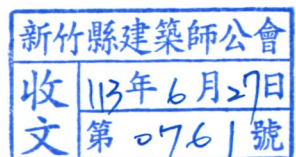 新竹縣建築師公會
收文
113年6月27日
第0761號